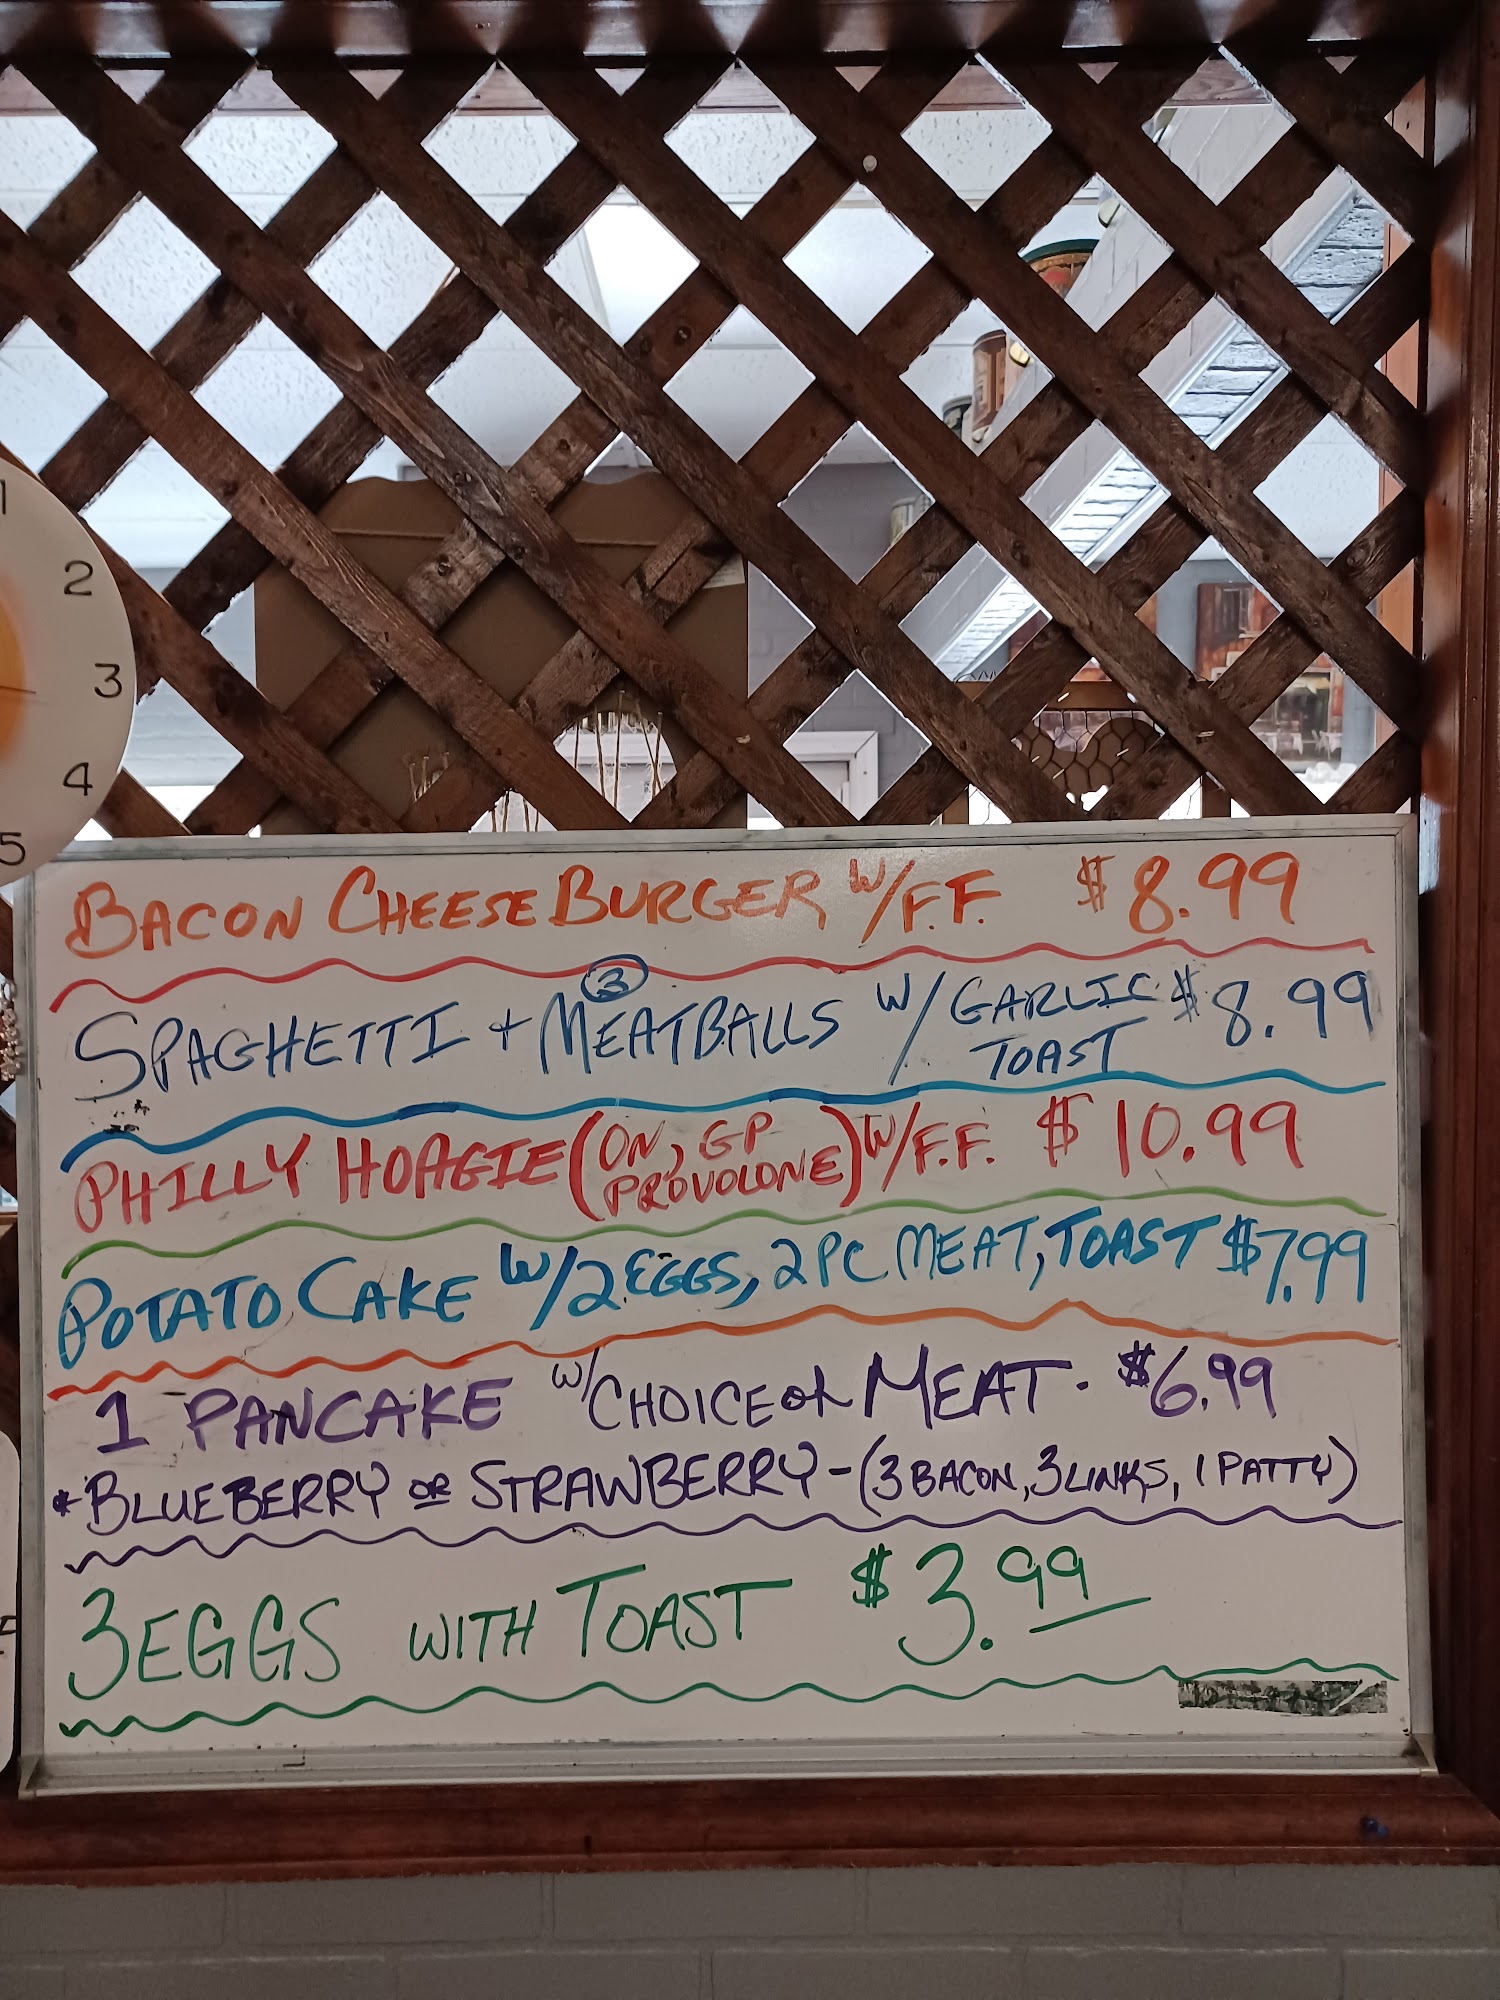 1
2
3
4
5
BACON CHEESEBURGER W/F.F. $8.99
SPAGHETTI + 3 MEATBALLS W/ GARLIC TOAST $8.99
PHILLY HOAGIE (ON, GP PROVOLONE) W/F.F. $10.99
POTATO CAKE W/2 EGGS, 2 PC MEAT, TOAST $7.99
1 PANCAKE W/ CHOICE of MEAT. $6.99
*BLUEBERRY OR STRAWBERRY - (3 BACON, 3 LINKS, 1 PATTY)
3 EGGS WITH TOAST $3.99